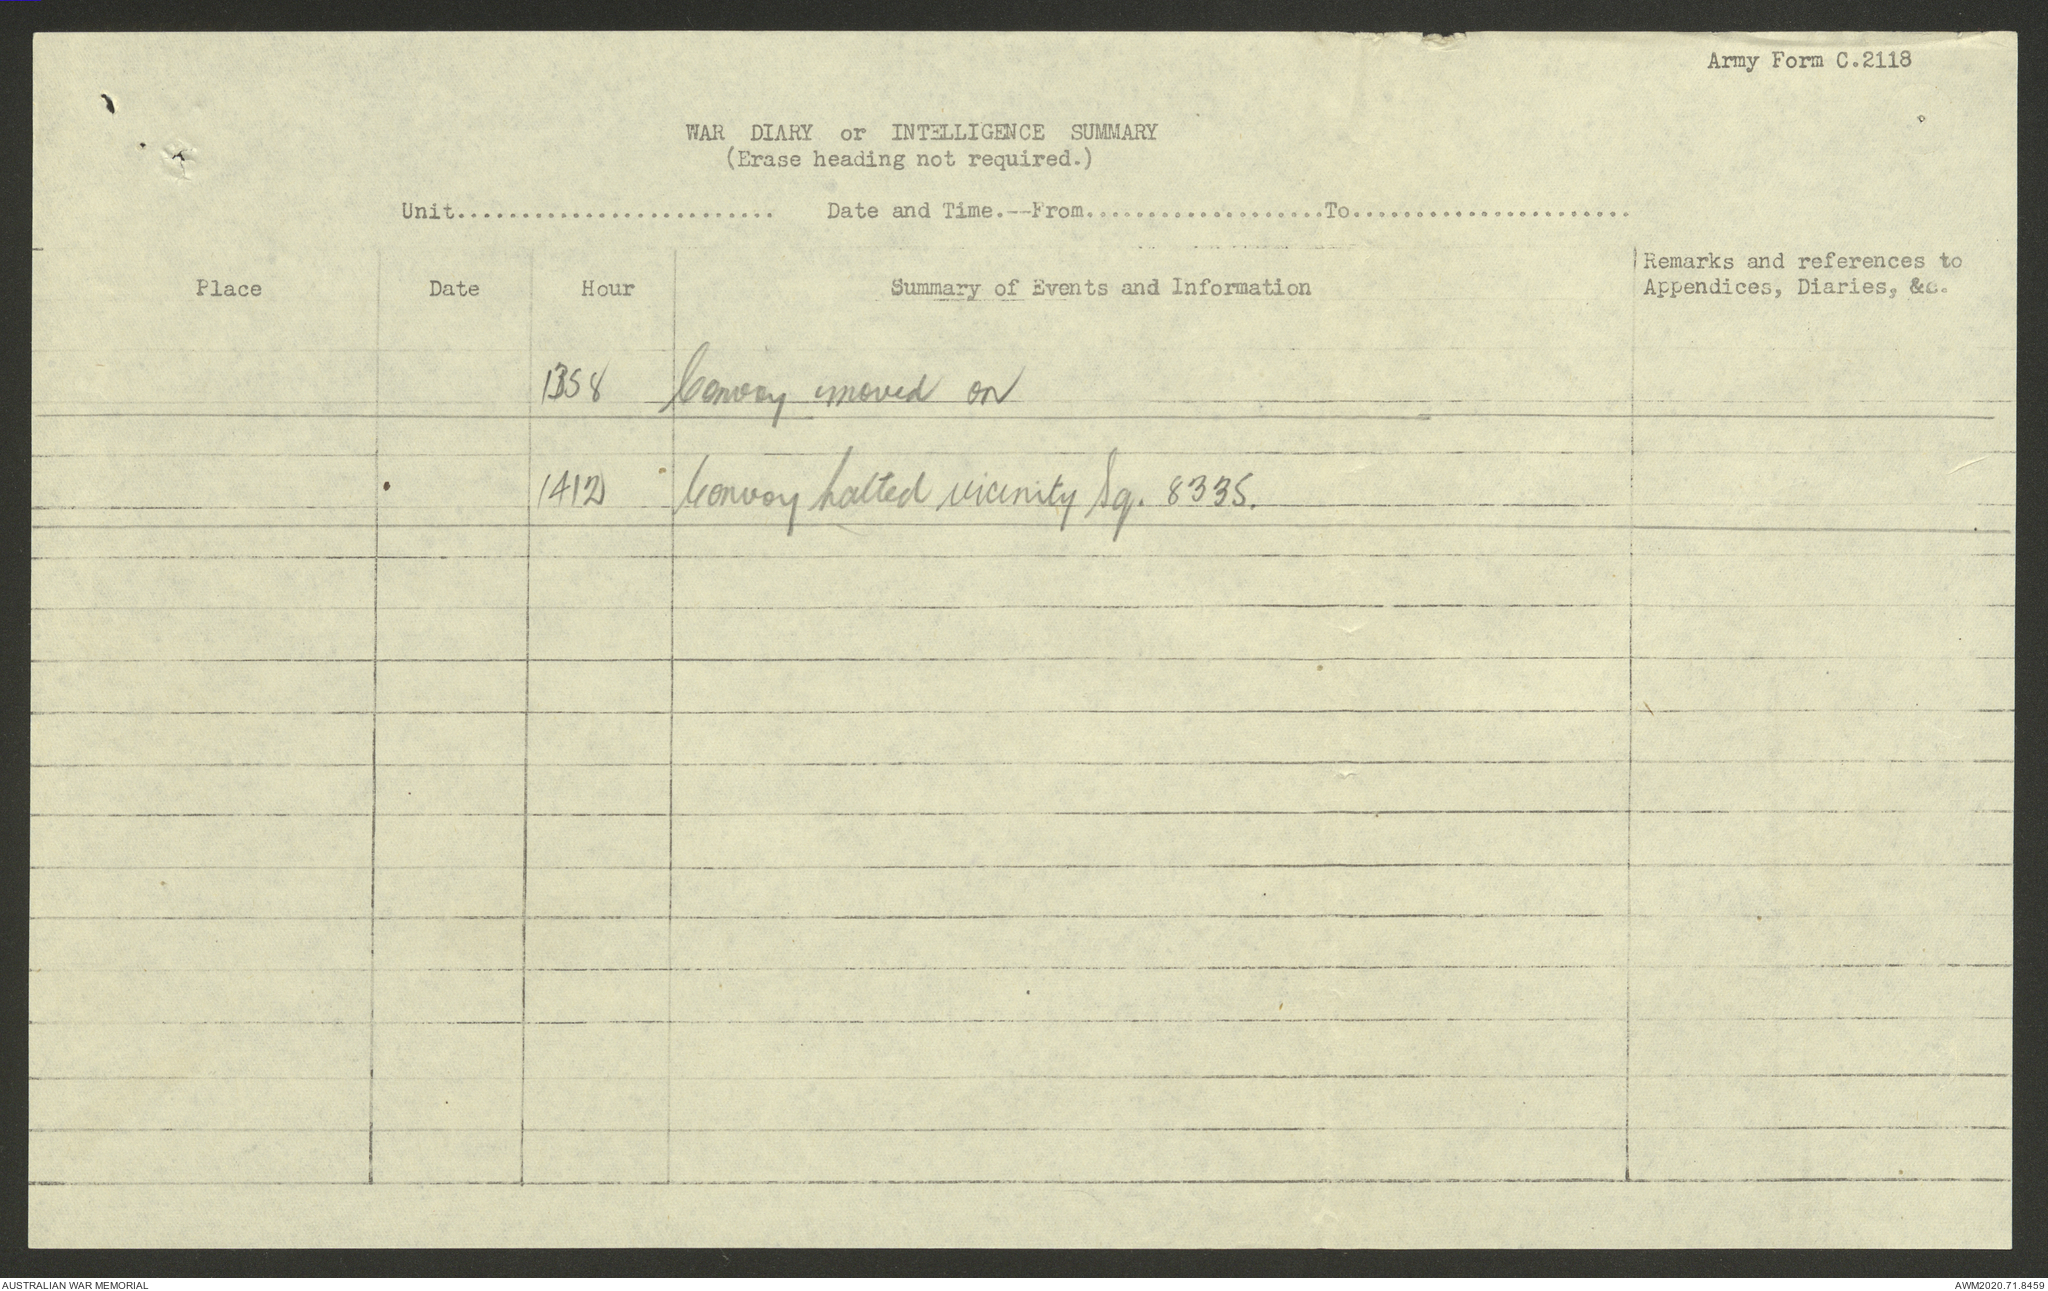 Army Form C.2118
WAR DIARY or INTELLIGENCE SUMMARY
(Erase heading not required.)
Unit......................... Date and Time.--From...................To......................
Place Date Hour Summary of Events and Information Remarks and references to
Appendices, Diaries, &c.
1358 Convoy moved on
1412 Convoy halted vicinity Sq. 8335.
AUSTRALIAN WAR MEMORIAL AWM2020.71.8459